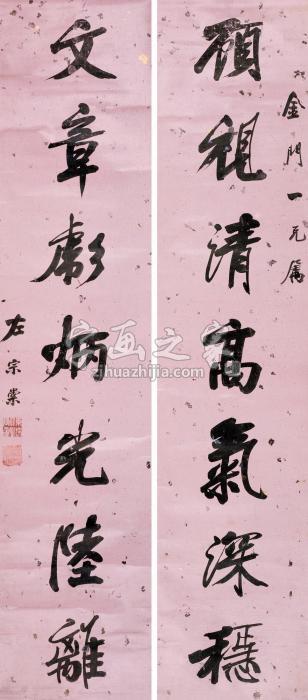 金門一兄屬
顧視清高氣深穩
文章彪炳光陸離
左宗棠
字画之家
zihuazhijia.com